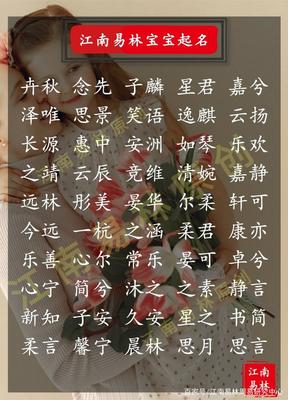 江南易林宝宝起名
卉秋 念先 子麟 星君 嘉兮
泽唯 思景 笑语 逸麒 云扬
长源 惠中 安洲 如琴 乐欢
之靖 云辰 竞维 清婉 嘉静
远林 彤美 晏华 尔柔 轩可
今远 一杭 之涵 柔君 康亦
乐善 心尔 常乐 晏可 卓兮
心宁 简兮 沐之 之素 静言
新知 子安 久安 星之 书简
柔言 馨宁 晨林 思月 思言
江南
易林
百家号/江南易林周易研究中心